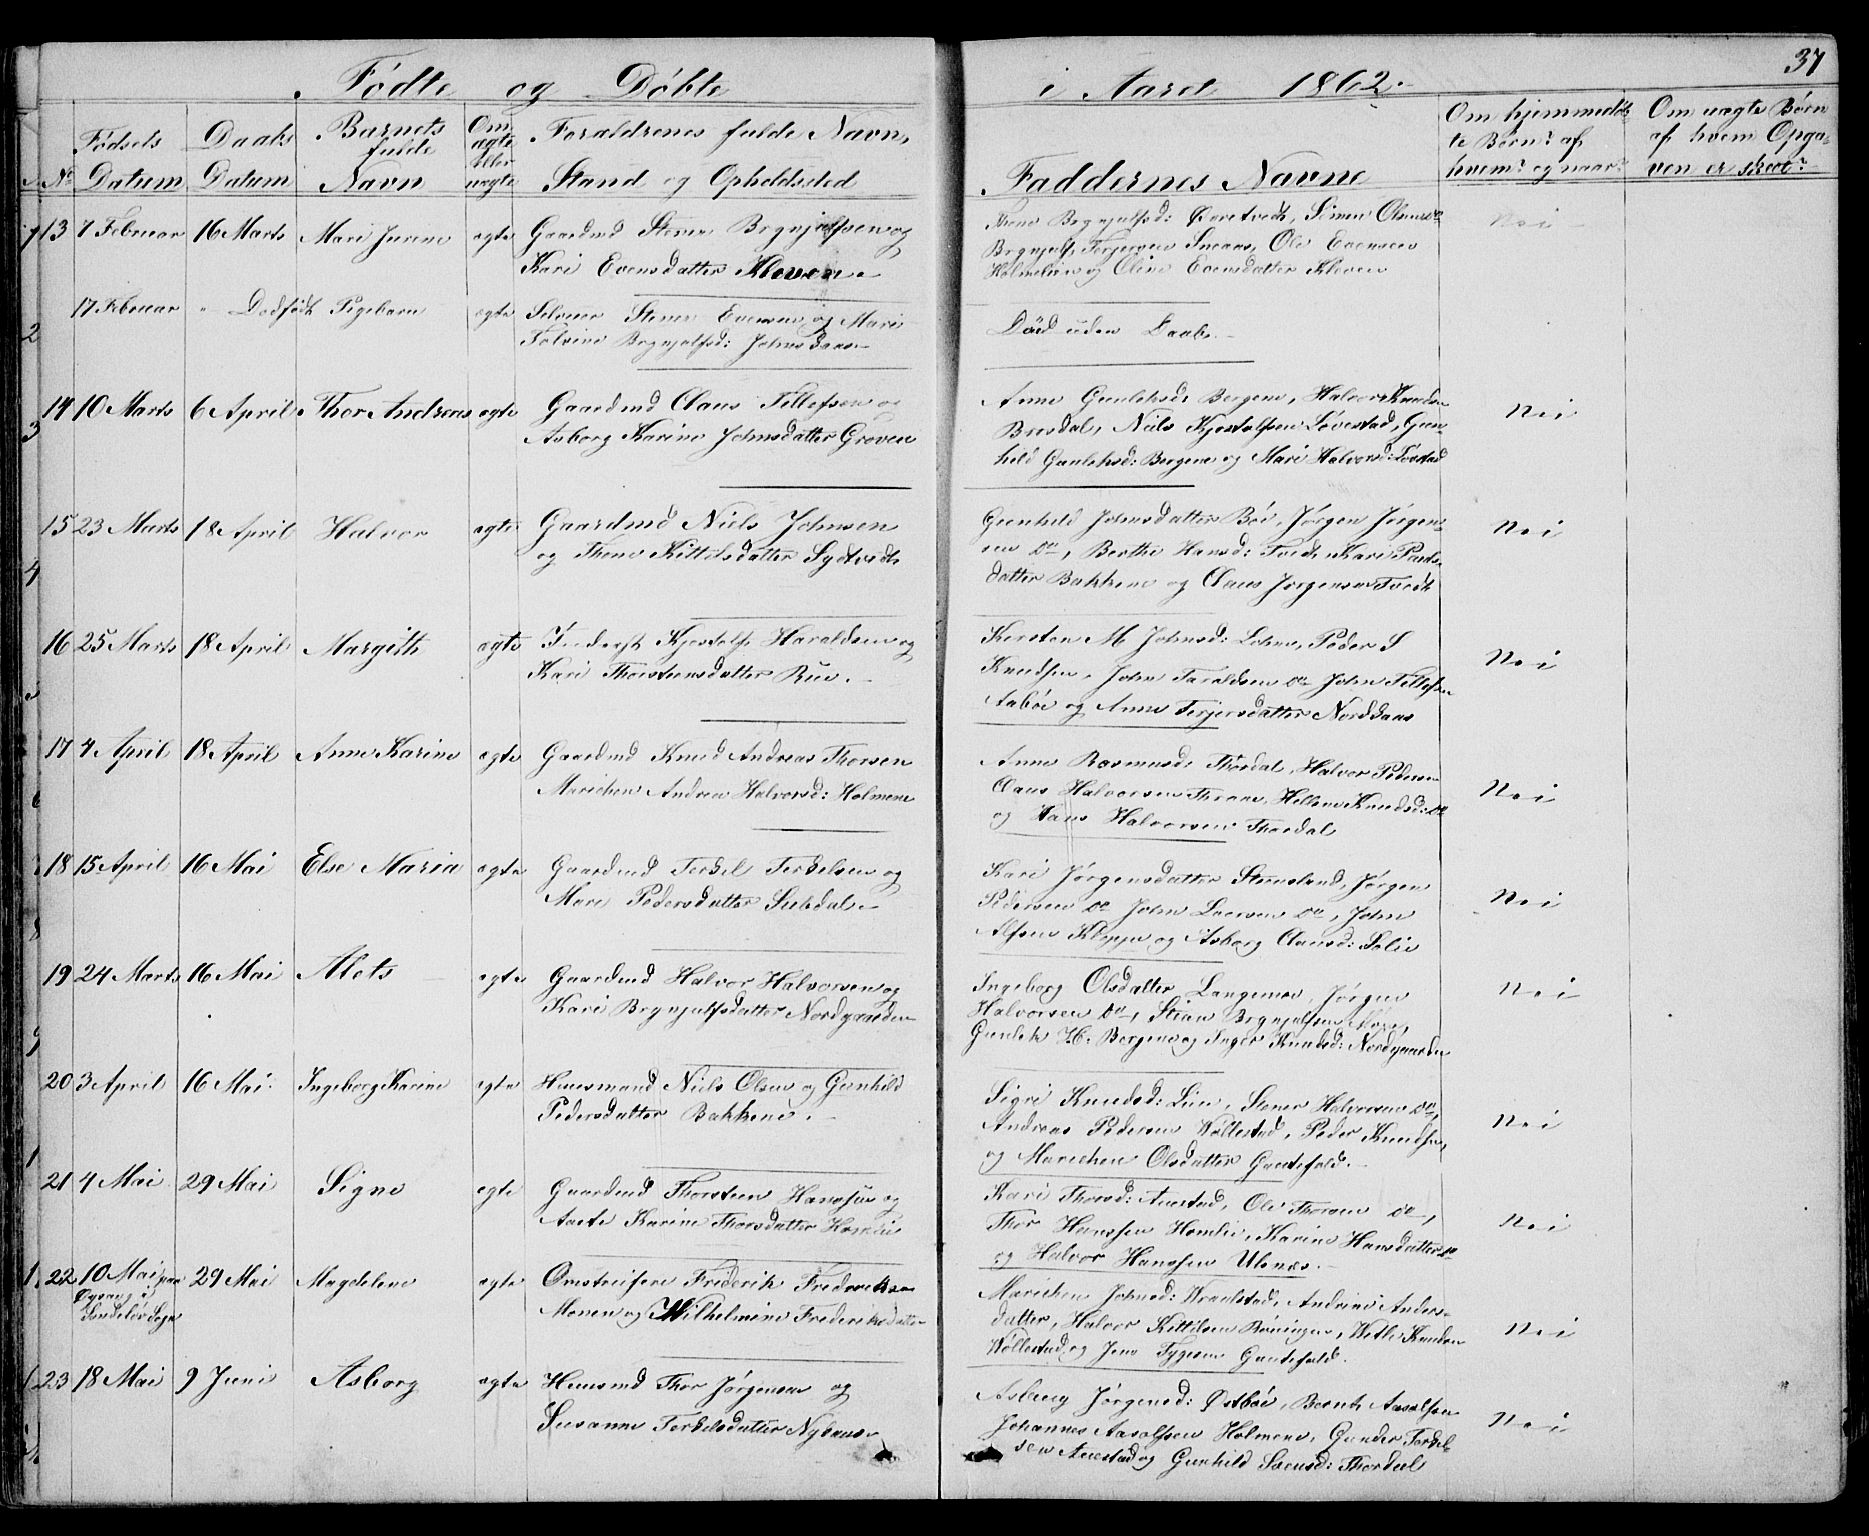 37
Födte og Döbte i Aaret 1862.
No Födsels Datum Daabs Datum Barnets fulde Navn Om ægte eller uægte Foraldrenes fulde Navn, Stand og Opholdssted
Faddernes Navne
Om hjemmedöbte Börn? af hvem? og naar?
Om uægte Börn af hvem Opgaven er skeet?
13 7 Februar 16 Marts Mari Jurine ægte Gaardmd Stener Brynjulfsen og
Kari Evensdatter Kleven
Brynjulfsd: Simen Olsen do
Brynjulf Terjersen Sneaas, Ole Evensen
Holmelien og Oline Evensdatter Kleven
Nei
17 Februar " Dödfödt Pigebarn ægte Selveier Stener Evensen og Mari
Brynjulfsd:
Död uden Daab.
14 10 Marts 6 April Thor Andreas ægte Gaardmd Claus Tellefsen og
Asborg Karine Johnsdatter Groven
Anne Gunleksd: Bergene, Halvor Knudsen
Bresdal, Niels Kjostolfsen Lövestad, Gun-
hild Gunleksd: Bergene og Mari Halvorsd: Lövstad
Nei
15 23 Marts 18 April Halvor ægte Gaardmd Niels Johnsen
og Thone Kittilsdatter Sydtvedt
Gunhild Johnsdatter Böe, Jörgen Jörgen-
sen do, Berthe Hansd: Tvedt, Kari Pauls-
datter Bakkene og Claus Jörgensen Tvedt
Nei
16 25 Marts 18 April Margith ægte Inderst Kjostolf Haraldsen og
Kari Thorstensdatter Rue.
Kirsten M Johnsd: Lohne, Peder S
Knudsen, John Taraldsen do John Tellefsen
Aaböe og Anne Terjersdatter Norddaas
Nei
17 4 April 18 April Anne Karine ægte Gaardmd Knud Andreas Thorsen
Marichen Andrea Halvorsd: Holmene
Anne Rasmusd: Thordal, Halvor Pedersen
Claus Halvorsen Thrane, Hellene Knudsd: do
og Hans Halvorsen Thordal
Nei
18 15 April 16 Mai Else Maria ægte Gaardmd Terkel Terkelsen og
Mari Pedersdatter
Kari Jörgensdatter Stensland, Jörgen
Pedersen do John Larsen do, John
Alfsen Kleppe og Asborg Clausd: Solie
Nei
19 24 Marts 16 Mai Alets ægte Gaardmd Halvor Halvorsen og
Kari Brynjulfsdatter Nordgaarden
Ingeborg Olsdatter Langemoe, Jörgen
Halvorsen do, Stian Brynjulfsen Moe,
Gunlek H. Bergene og Inger Knudsd: Nordgaarden
Nei
20 3 April 16 Mai Ingeborg Karine ægte Huusmand Niels Olsen og Gunhild
Pedersdatter Bakkene.
Sigri Knudsd: Lien, Stener Halvorsen do,
Andreas Pedersen Wöllestad, Peder Knudsen
og Marichen Olsdatter Gautefald.
Nei
21 4 Mai 29 Mai Signe ægte Gaardmd Thorsten Hanssen og
Aaste Karine Thorsdatter Homlie
Kari Thorsd: Auestad, Ole Thorsen do,
Thor Hanssen Homlie, Karine Hansdatter do
og Halvor Hanssen Ulsnæs.
Nei
22 10 Mai paa 29 Mai Magdelene ægte Omstreifere Frederik Frederiksen
Öysang i
Söndeløv Sogn
Monen og Wilhelmine Frederiksdatter
Marichen Johnsd: Wraalstad, Andrine Anders-
datter, Halvor Kittilsen Röningen, Wetle Knudsen
Wöllestad og Jens Tygesen Gautefald.
Nei
23 18 Mai 9 Juni Asborg ægte Huusmd Thor Jörgensen og
Susanne Terkelsdatter Nyhaus
Asborg Jörgensd: Östböe, Bernt Aasolfsen
Johannes Aasolfsen Holmene, Gunder Terkel-
sen Auestad og Gunhild Svensd: Thordal
Nei